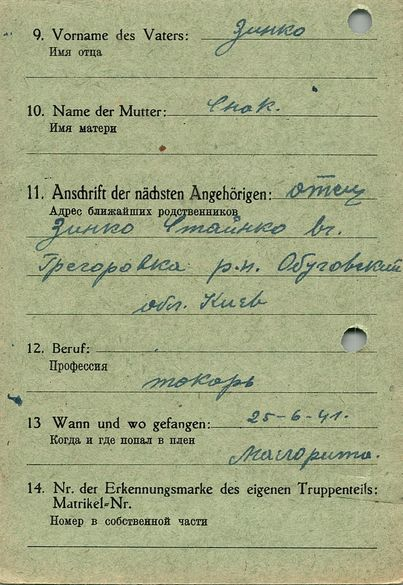 9. Vorname des Vaters: Зинко
Имя отца
10. Name der Mutter: Снак.
Имя матери
11. Anschrift der nächsten Angehörigen: отец
Адрес ближайших родственников
Зинко Стаинко вг.
Грегоровка р.н. Обуговский
обл. Киев
12. Beruf:
Профессия
токарь
13 Wann und wo gefangen: 25-6-41.
Когда и где попал в плен
Маглорита.
14. Nr. der Erkennungsmarke des eigenen Truppenteils:
Matrikel-Nr.
Номер в собственной части